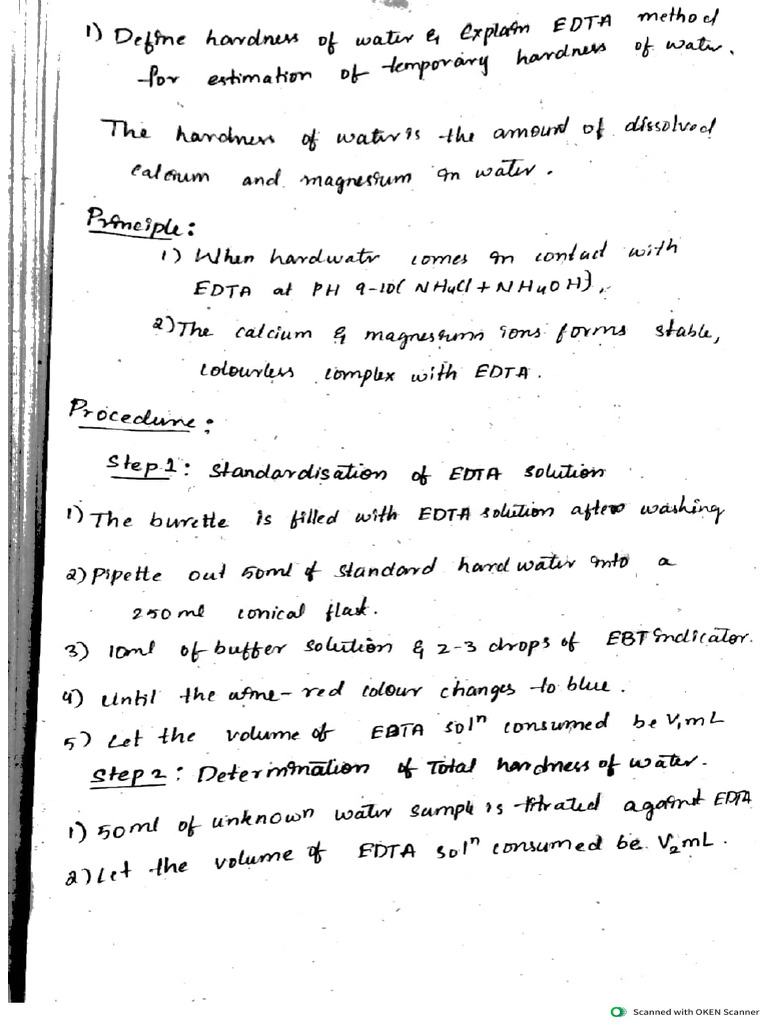 1) Define hardness of water & Explain EDTA method
for estimation of temporary hardness of water.
The hardness of water is the amount of dissolved
calcium and magnesium in water.
Principle:
1) When hardwatr comes in contact with
EDTA at PH 9-10( NH4Cl + NH4OH).
2) The calcium & magnesium ions forms stable,
colourless complex with EDTA.
Procedure:
Step 1: Standardisation of EDTA solution
1) The burette is filled with EDTA solution after washing
2) Pipette out 50ml of standard hard water into a
250 ml conical flask.
3) 10ml of buffer solution & 2-3 drops of EBT indicator.
4) Until the wine-red colour changes to blue.
5) Let the volume of EBTA solⁿ consumed be V₁mL
Step 2: Determination of Total hardness of water.
1) 50ml of unknown water sample is titrated against EDTA
2) Let the volume of EDTA solⁿ consumed be V₂mL.
Scanned with OKEN Scanner